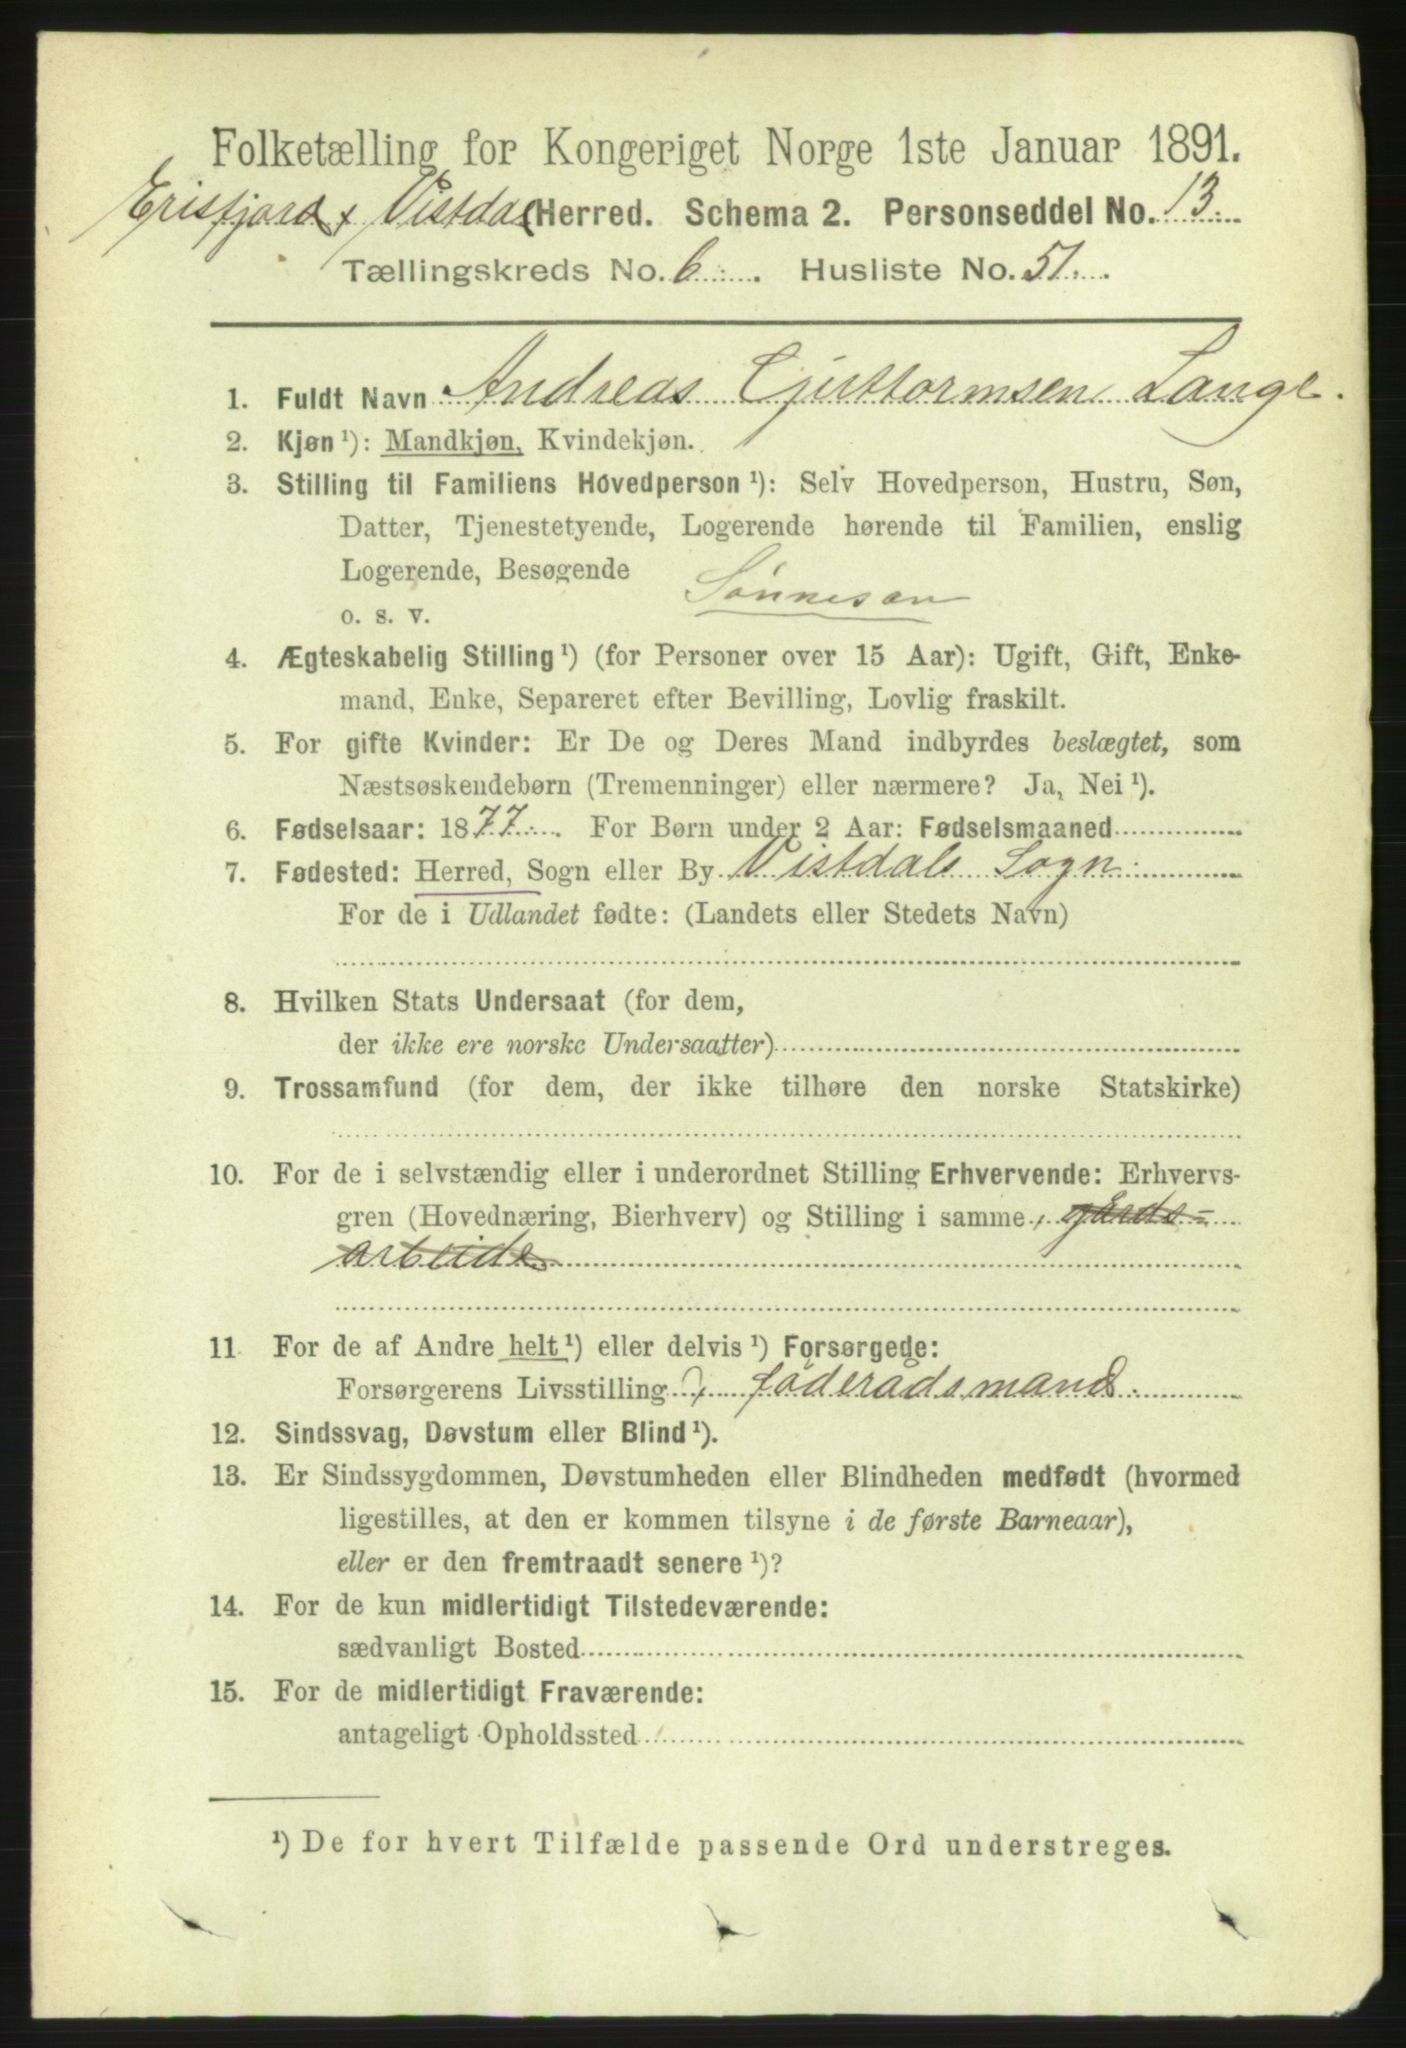 Folketælling for Kongeriget Norge 1ste Januar 1891.
Erisfjord & Vistdal Herred. Schema 2. Personseddel No. 13.
Tællingskreds No. 6. Husliste No. 51.
1. Fuldt Navn Andreas Gjuttormsen Lange.
2. Kjøn ¹): Mandkjøn, Kvindekjøn.
3. Stilling til Familiens Hovedperson ¹): Selv Hovedperson, Hustru, Søn,
Datter, Tjenestetyende, Logerende hørende til Familien, enslig
Logerende, Besøgende
o. s. v. Sönnesön
4. Ægteskabelig Stilling ¹) (for Personer over 15 Aar): Ugift, Gift, Enke-
mand, Enke, Separeret efter Bevilling, Lovlig fraskilt.
5. For gifte Kvinder: Er De og Deres Mand indbyrdes beslægtet, som
Næstsøskendebørn (Tremenninger) eller nærmere? Ja, Nei ¹).
6. Fødselsaar: 1877. For Børn under 2 Aar: Fødselsmaaned
7. Fødested: Herred, Sogn eller By Vistdals Sogn
For de i Udlandet fødte: (Landets eller Stedets Navn)
8. Hvilken Stats Undersaat (for dem,
der ikke ere norske Undersaatter)
9. Trossamfund (for dem, der ikke tilhøre den norske Statskirke)
10. For de i selvstændig eller i underordnet Stilling Erhvervende: Erhvervs-
gren (Hovednæring, Bierhverv) og Stilling i samme, gårds-
arbeide
11 For de af Andre helt ¹) eller delvis ¹) Forsørgede:
Forsørgerens Livsstilling föderådsmand.
12. Sindssvag, Døvstum eller Blind ¹).
13. Er Sindssygdommen, Døvstumheden eller Blindheden medfødt (hvormed
ligestilles, at den er kommen tilsyne i de første Barneaar),
eller er den fremtraadt senere ¹)?
14. For de kun midlertidigt Tilstedeværende:
sædvanligt Bosted
15. For de midlertidigt Fraværende:
antageligt Opholdssted
¹) De for hvert Tilfælde passende Ord understreges.